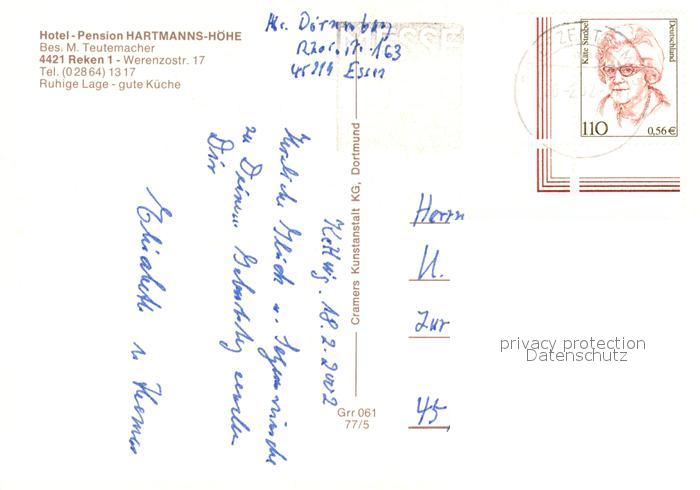 Hotel-Pension HARTMANNS-HÖHE
Bes. M. Teutemacher
4421 Reken 1 - Werenzostr. 17
Tel. (02864) 1317
Ruhige Lage - gute Küche
163
Essen
Käte Strobel
Deutschland
110
0,56 €
Kettwig, 18.2.2002
Herzliche Glück u. Segenswünsche
zu Deinem Geburtstag senden
Dir
Elisabeth u.
Cramers Kunstanstalt KG, Dortmund
Grr 061
77/5
Herrn
U.
Zur
45,
privacy protection
Datenschutz